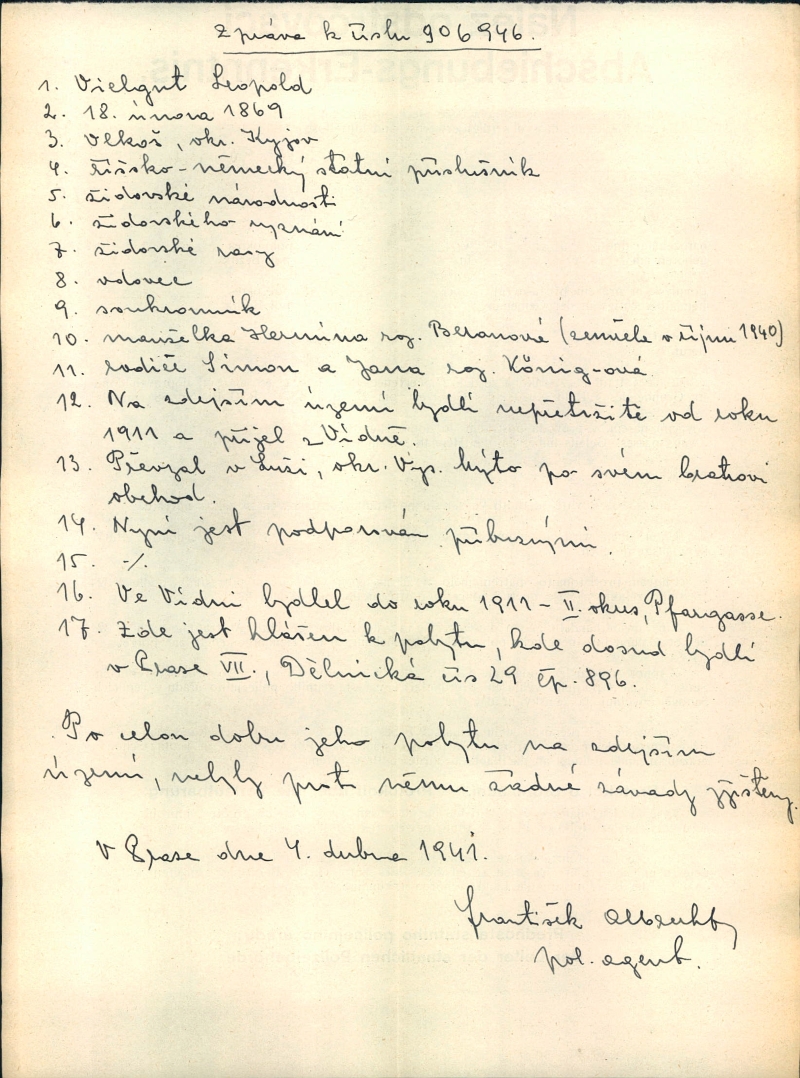 Zpráva k číslu 906946.
1. Vielgut Leopold
2. 18. února 1869
3. Vlkoš, okr. Kyjov
4. říšsko-německý státní příslušník
5. židovské národnosti
6. židovského vyznání
7. židovské rasy
8. vdovec
9. soukromník
10. manželka Hermina roz. Beranové (zemřela v říjnu 1940)
11. rodiče Simon a Jana roz. König-ová
12. Na zdejším území bydlí nepřetržitě od roku
1911 a přijel z Vídně.
13. Převzal v Luži, okr. Vys. Mýto po svém bratrovi
obchod.
14. Nyní jest podporován příbuznými.
15. -/.
16. Ve Vídni bydlel do roku 1911 - II. okres,
17. Zde jest hlášen k pobytu, kde dosud bydlí
v Praze VII., Dělnická čís 29 čp. 896.
Po celou dobu jeho pobytu na zdejším
území, nebyly proti němu žádné závady zjištěny.
V Praze dne 4. dubna 1941.
František Albrecht
pol. agent.